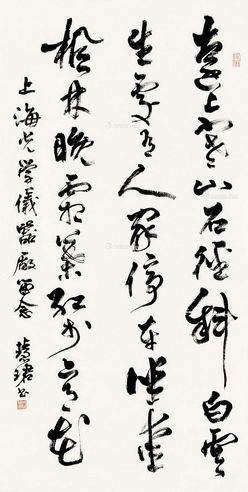 遠上寒山石徑斜白雲
生處有人家停車坐愛
楓林晚霜葉紅於二月花
上海光學儀器廠留念
慧珺书